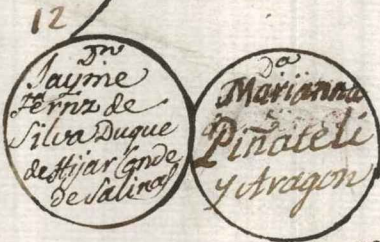 12
Dn
Jayme
Fernz de
Silva Duque
de Hijar Conde
de Salinas
Da
Marianna
Piñateli
y Aragon